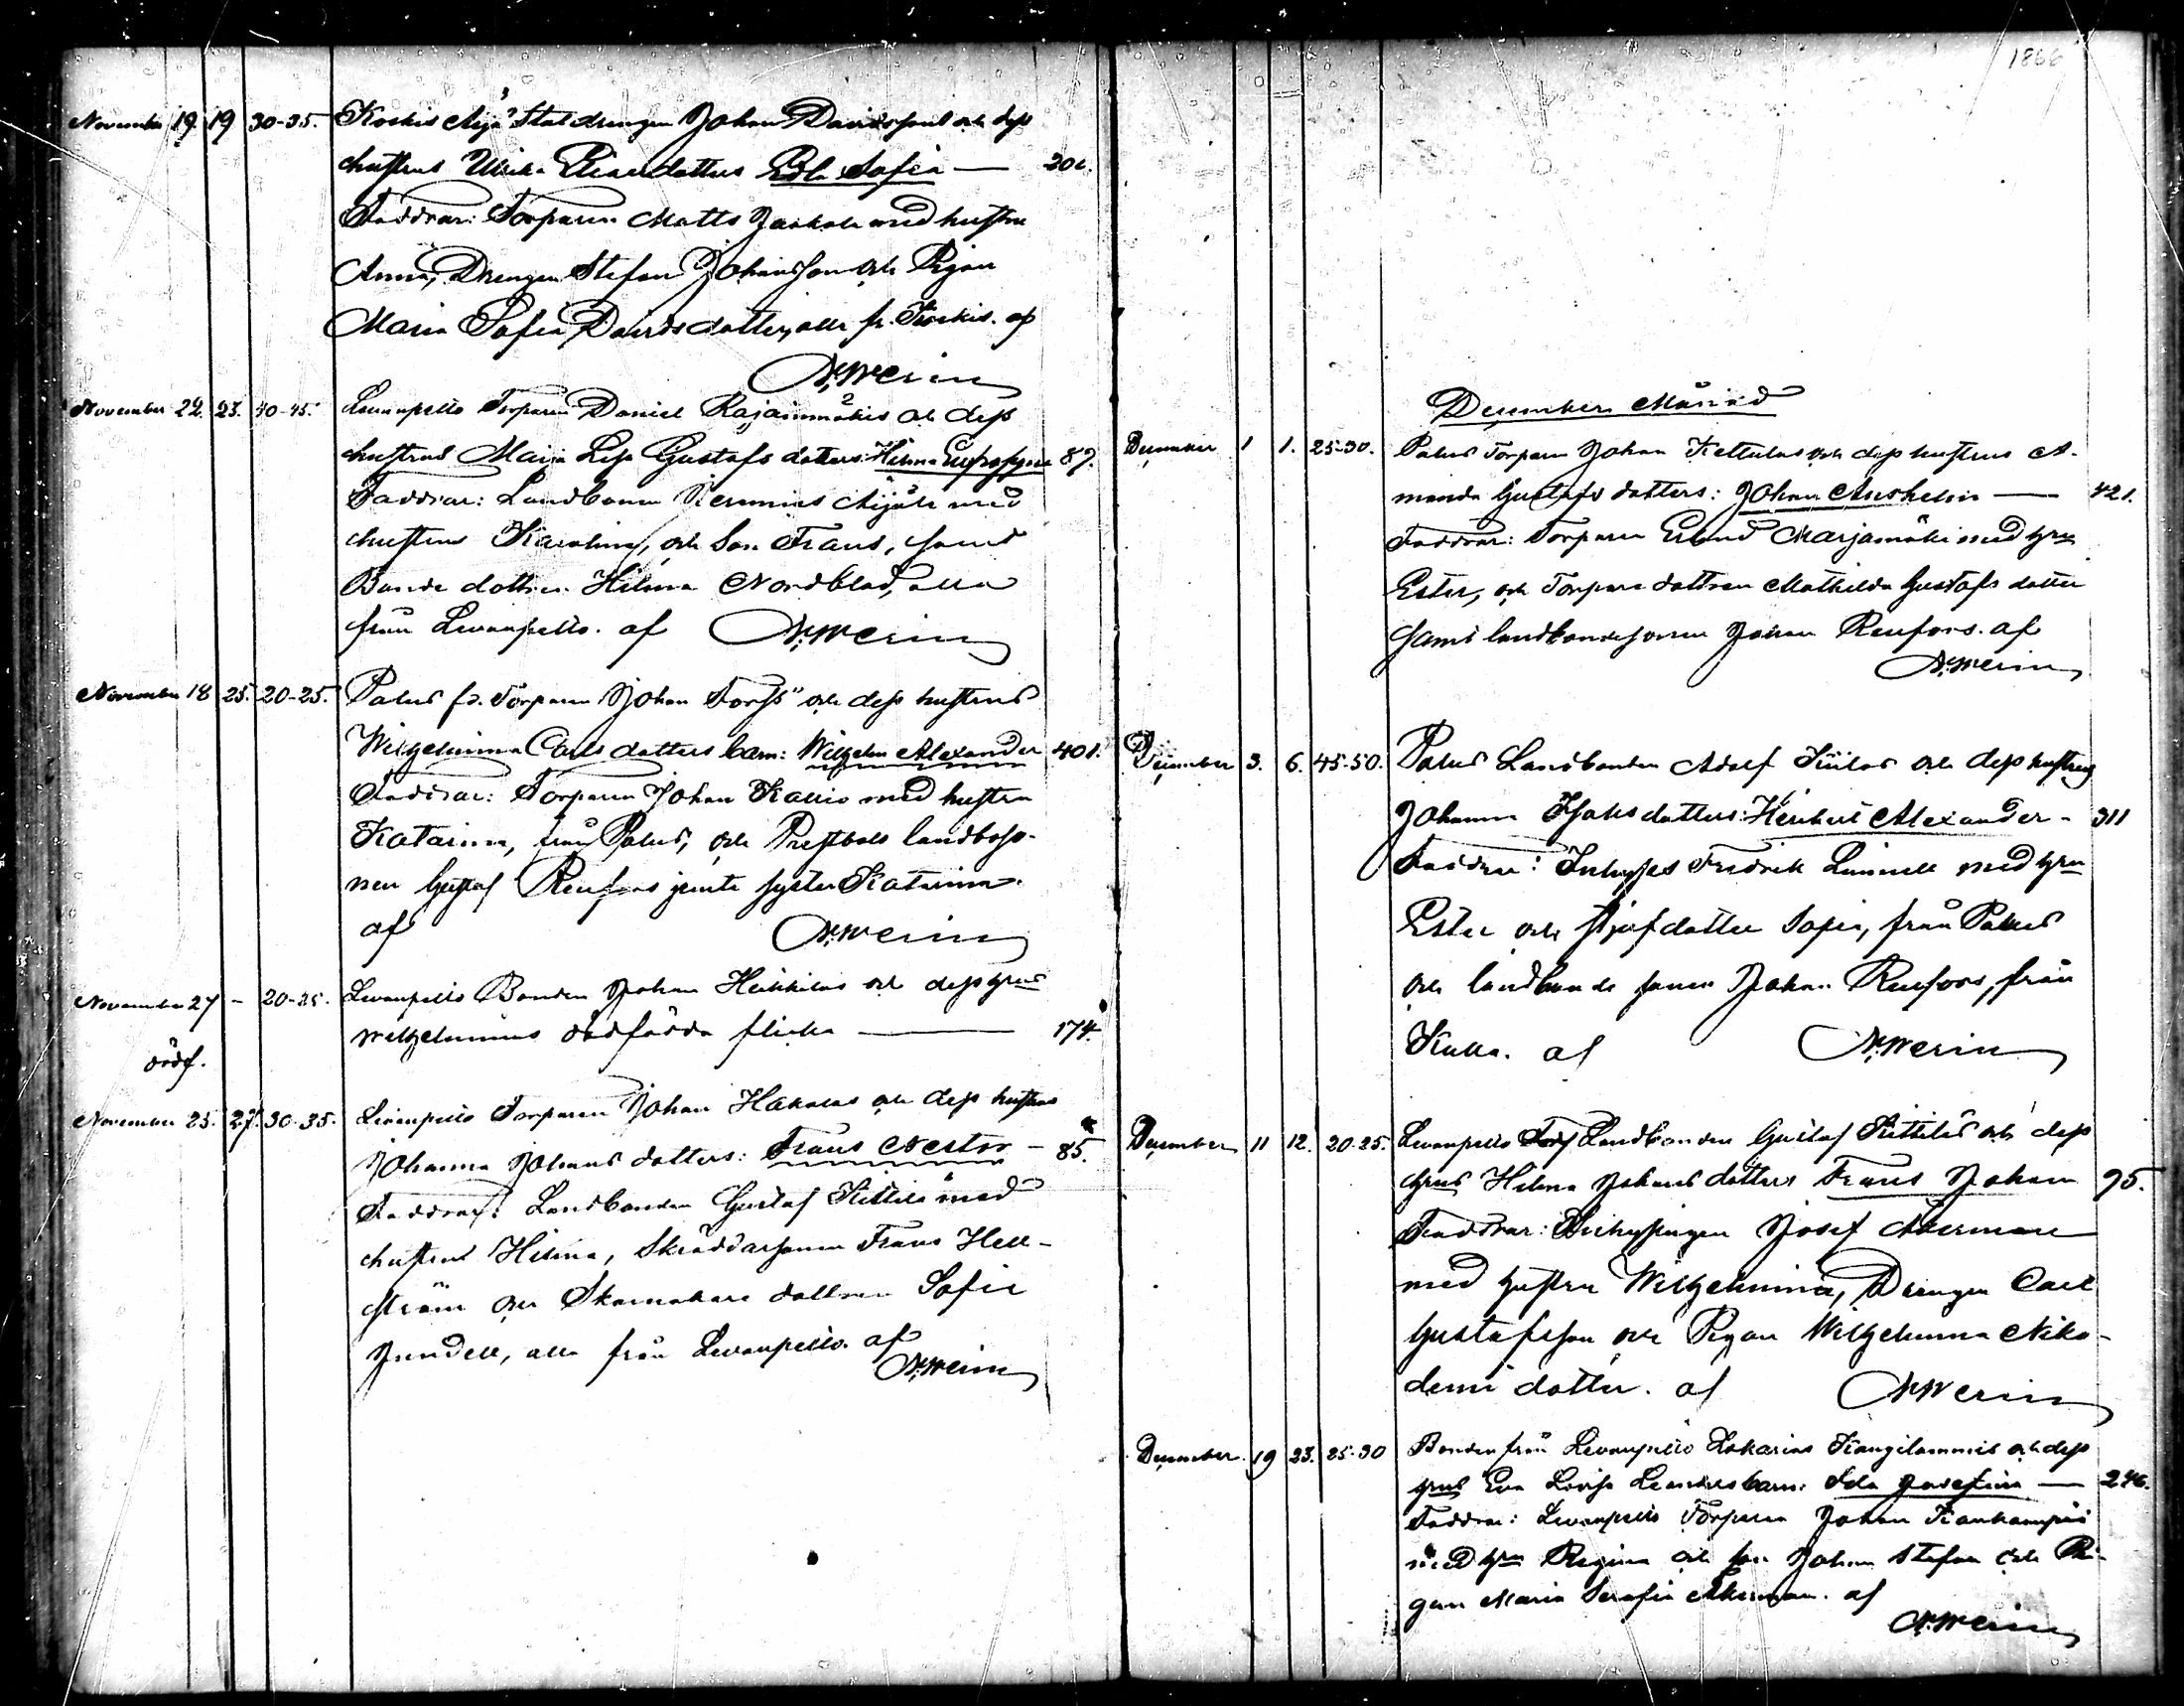 November 19. 19 30-35. Koskis Äijä Statdrengen Johan Davidssons och dess
hustrus Ulrika Eliaedotters Edla Sofia — 206.
Faddrar: Torparen Matts Jaakola med hustru
Anna, Drengen Stefan Johansson och Pigan
Maria Sofia Davidsdotter, alla fr. Koskis. af
A. Werin
November 22. 23. 40-45. Levanpello Torparen Daniel Rajainmäkis och dess
hustrus Maija Lisa Gustafs dotters: Hilma Eufrosyne 87.
Faddrar: Landbonden Äijälä med
hustrun Karolina, och Son Frans, samt
Bonde dottren Hilma Nordblad, alla
från Levanpello. af A. Werin
November 18 25. 20-25. Palus fd. Torparen Johan Forss" och dess hustrus
Wilhelmina Carls dotters barn: Wilhelm Alexander 401.
Faddrar: Torparen Johan Kallio med hustru
Katarina, från Palus, och Prestbols landboso-
nen Gustaf Renfors jemte syster Katarina.
af A. Werin
November 27 – 20-25. Levanpello Bonden Johan Heikkilas och dess hrus
Wilhelminas dödfödda flicka — 174.
dödf.
November 25. 27. 30-35. Levanpello Torparen Johan Hakalas och dess hustrus
Johanna Johans dotters: Frans Nestor – 85.
Faddrar: Landbonden Gustaf Kittilä med
hustrus Hilma, Skräddarsonen Frans Hell-
ström och Skomakare dottren Sofia
Jundell, alla från Levanpello. af
A. Werin
1866
December Månad
December 1 1. 25-30. Palus Torparen Johan Kettulas och dess hustrus A-
manda Gustafs dotters: Johan Anshelm — 421.
Faddrar: Torparen Erland Marjamäki med hru
Ester, och Torpare dottren Mathilda Gustafs dotter
samt landbondesonen Johan Renfors. af
A. Werin
December 3. 6. 45-50. Palus Landbonden Adolf Kiilas och dess hustrus
Johanna Isaksdotters: Heribert Alexander – 311
Faddrar: Inhyses Fredrik Linnell med hru
Ester och styfdotter Sofia, från Palus
och landbonde sonen Johan Renfors, från
Kulla. af A. Werin
December 11 12. 20-25. Levanpello Landbonden Gustaf Kittiläs och dess
hrus Hilma Johans dotters Frans Johan 95.
Faddrar: Inhysingen Josef Åkerman
med hustru Wilhelmina, Drengen Carl
Gustafsson och Pigan Wilhelmina Niko-
demi dotter. af A. Werin
December 19 23. 25-30 Bonden från Levanpello Zakarias Kangilammis och dess
hrus Eva Lovisa Leanders barn: Ida Josefina — 246.
Faddrar: Levanpello Torparen Johan Kankaanpää
med hru Regina och son Johan Stefan och Pi-
gan Maria Serafia Åkerman. af
A. Werin